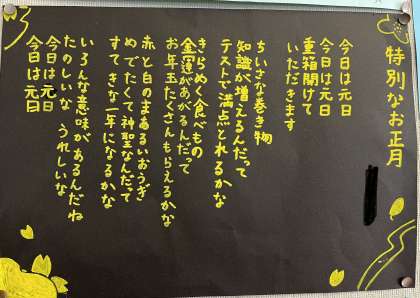 特別なお正月
今日は元日
今日は元日
重箱開けて
いただきます
ちいさな巻き物
知識が増えるんだって
テストで満点とれるかな
きらめく食べもの
金運があがるんだって
お年玉たくさんもらえるかな
赤と白のまあるいおうぎ
めでたくて神聖なんだって
すてきな一年になるかな
いろんな意味があるんだね
たのしいな うれしいな
今日は元日
今日は元日